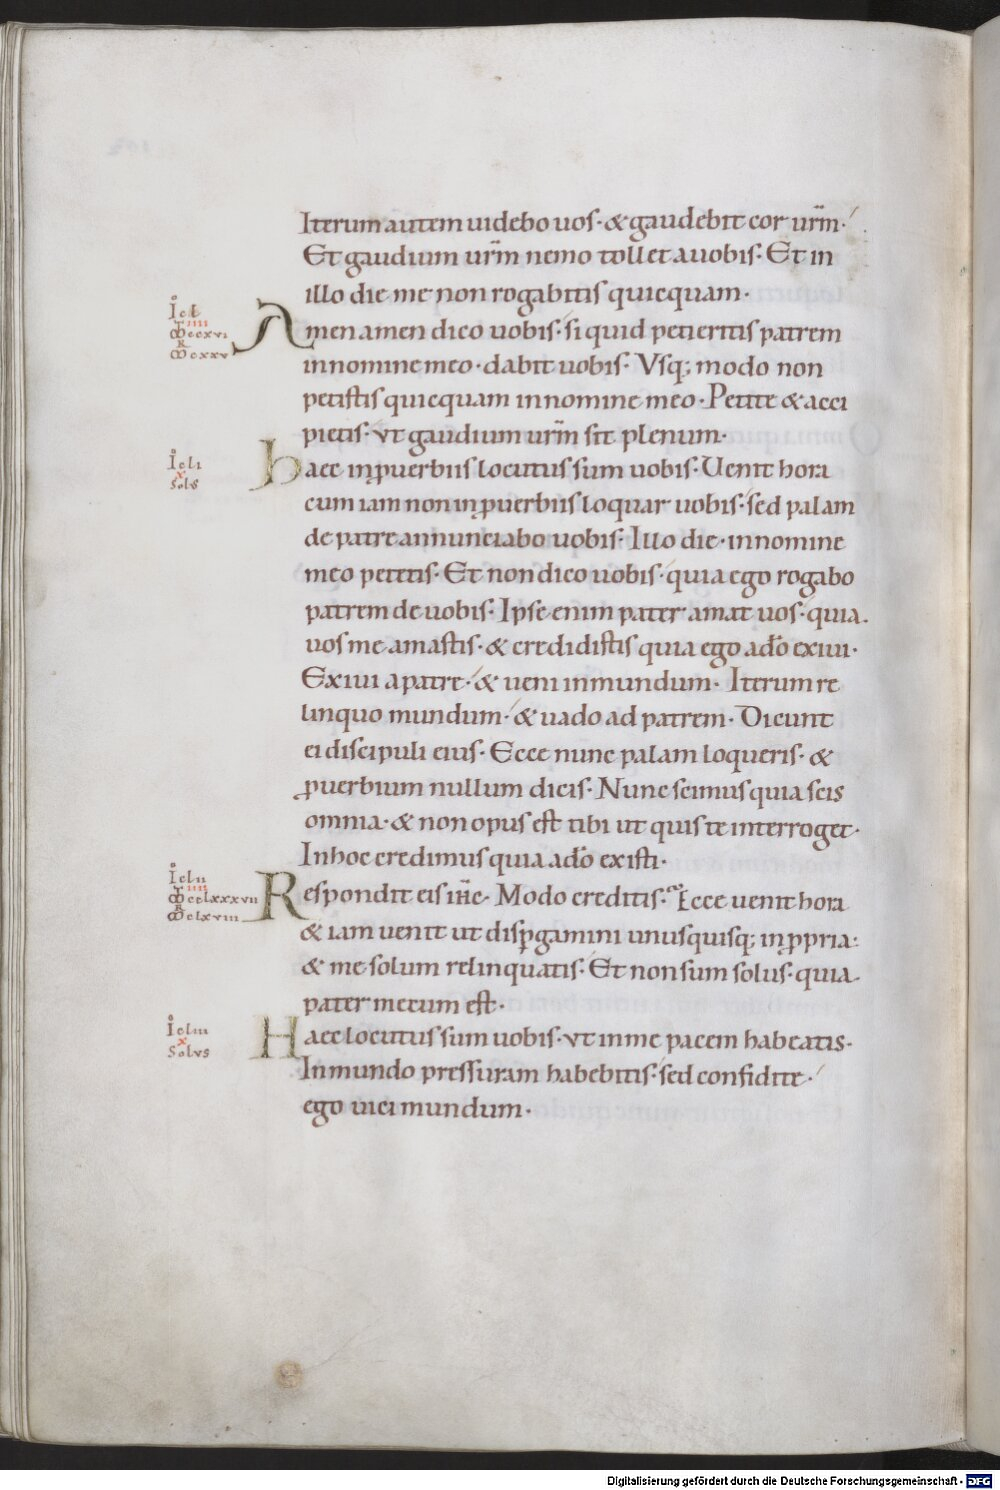 Iterum autem uidebo uos· & gaudebit cor ur̄m·
Et gaudium ur̄m nemo tollet a uobis· Et in
illo die me non rogabitis quicquam·
Io cl
IIII
M̄ ccxvi
R
M̄ cxxv
Amen amen dico uobis· si quid petieritis patrem
in nomine meo· dabit uobis· Vsq; modo non
petistis quicquam in nomine meo· Petite & acci
pietis· vt gaudium ur̄m sit plenum·
Io cli
x
sols
haec in ꝓuerbiis locutus sum uobis· Uenit hora
cum iam non in ꝓuerbiis loquar uobis· sed palam
de patre annunciabo uobis· Illo die· in nomine
meo petetis· Et non dico uobis· quia ego rogabo
patrem de uobis· Ipse enim pater amat uos· quia
uos me amastis· & credidistis quia ego a dō exiui·
Exiui a patre· & ueni in mundum· Iterum re
linquo mundum· & uado ad patrem· Dicunt
ei discipuli eius· Ecce nunc palam loqueris· &
ꝓuerbium nullum dicis· Nunc scimus quia scis
omnia· & non opus est tibi ut quis te interroget·
In hoc credimus quia a dō existi·
Io clii
IIII
M̄ cclxxxvii
R
M̄ clxviii
Respondit eis ih̄c· Modo creditis· Ecce uenit hora
& iam uenit ut disꝑgamini unusquisq; in ꝓpria·
& me solum relinquatis· Et non sum solus· quia
pater mecum est·
Io cliii
x
Solvs
Haec locutus sum uobis· vt in me pacem habeatis·
In mundo pressuram habebitis· sed confidite·
ego uici mundum·
Digitalisierung gefördert durch die Deutsche Forschungsgemeinschaft - DFG